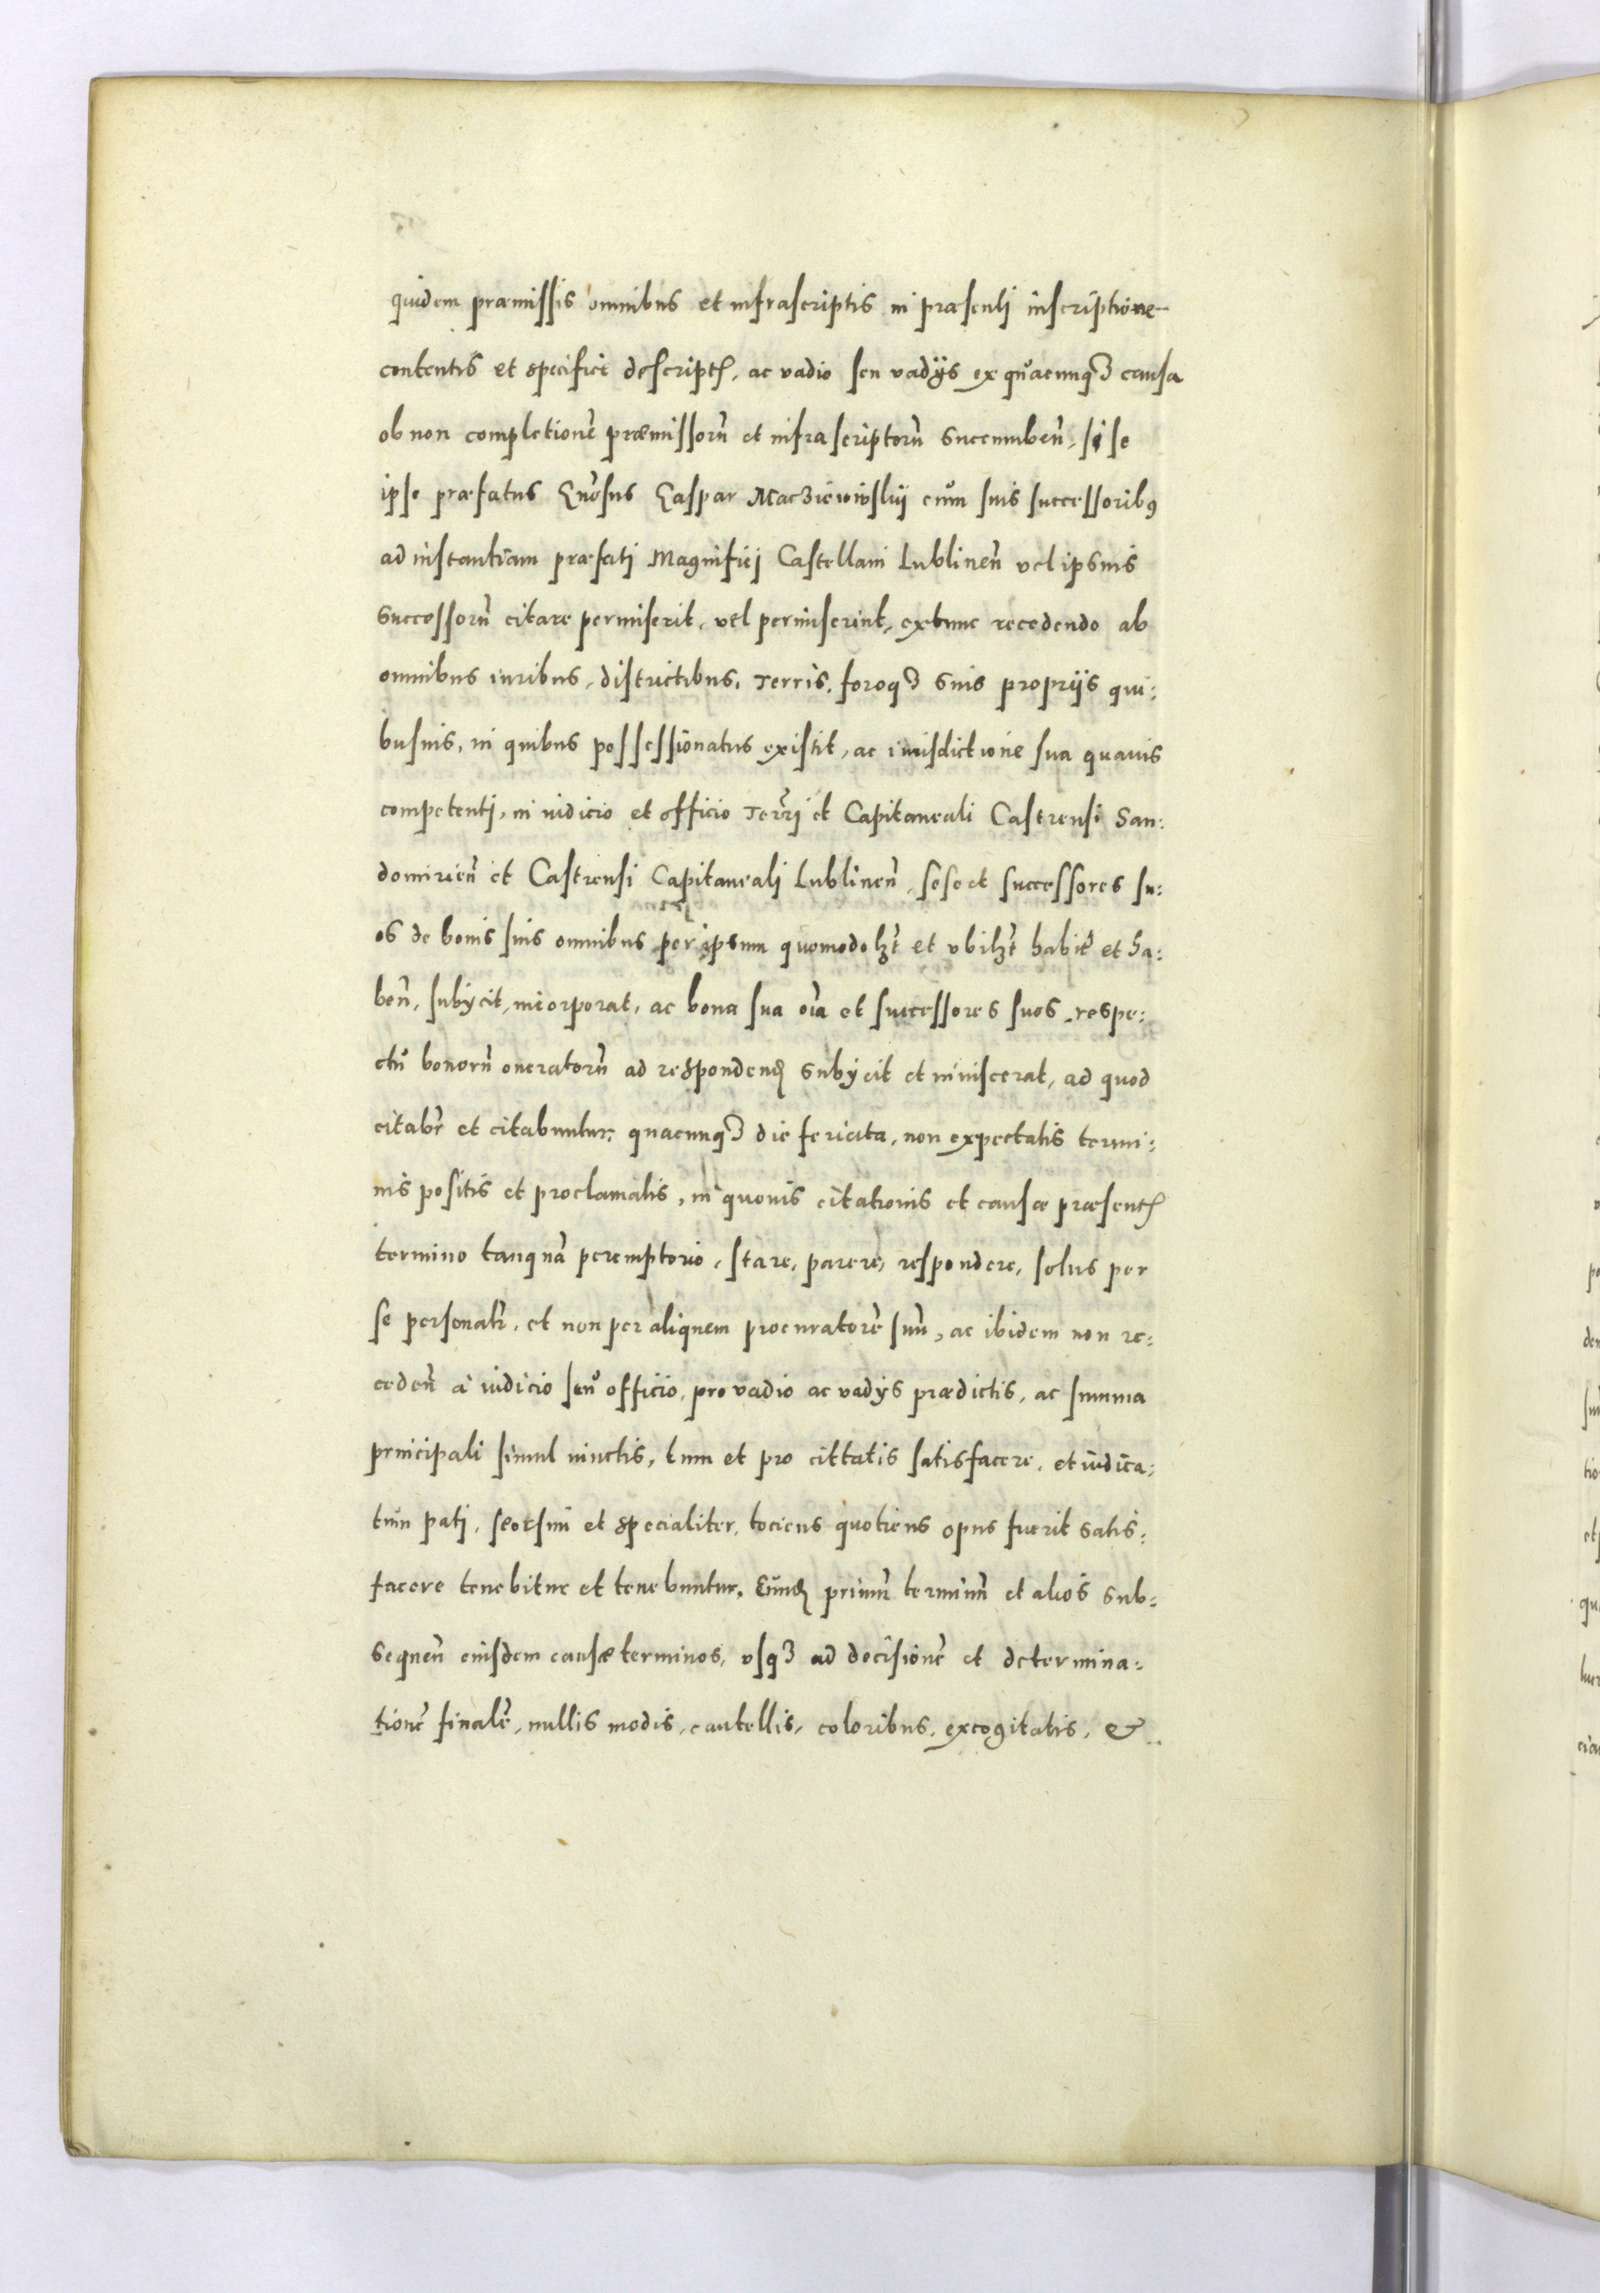 quidem præmissis omnibus et infrascriptis in præsenti inscriptione
contentis et specifice descriptꝭ, ac vadio seu vadijs ex quacunqꝫ causa
ob non completionē præmissorū et infrascriptorū succumbeñ, si se
ipse præfatus Gñosus Gaspar Macziewiwskij cum suis successoribꝰ
ad instantiam præfati Magnifici Castellani Lublineñ vel ipsius
successorū citare permiserit, vel permiserint, extunc recedendo ab
omnibus iuribus, districtibus, terris, foroqꝫ suis proprijs qui:
busuis, in quibus possessionatus existit, ac iurisdictione sua quauis
competenti, in iudicio et officio Terrī et Capitaneali Castrensi San:
domirieñ et Castrensi Capitaneali Lublineñ, sese et successores su:
os de bonis suis omnibus per ipsum quomodolꝫt et vbilꝫt habit̃ et ha:
beñ, subijcit, incorporat, ac bona sua oīa et successores suos respe:
ctu bonorū oneratorū ad respondendꝭ subijcit et inuiscerat, ad quod
citabr̃ et citabuntur, quacunqꝫ die feriata, non expectatis termi:
nis positis et proclamatis, in quouis citationis et causæ præsentꝭ
termino tanquā peremptorio, stare, parere, respondere, solus per
se personalr̃, et non per aliquem procuratorē suū, ac ibidem non re:
cedeñ à iudicio seu officio, pro vadio ac vadijs prædictis, ac summa
principali simul iunctis, tum et pro cittatis satisfacere, et iudica:
tum pati, seorsim et specialiter, tociens quotiens opus fuerit satis:
facere tenebitur et tenebuntur. Eundꝭ primū terminū et alios sub:
sequeñ eiusdem causæ terminos, vsqꝫ ad decisionē et determina:
tionē finalē, nullis modis, cautellis, coloribus, excogitatis, &